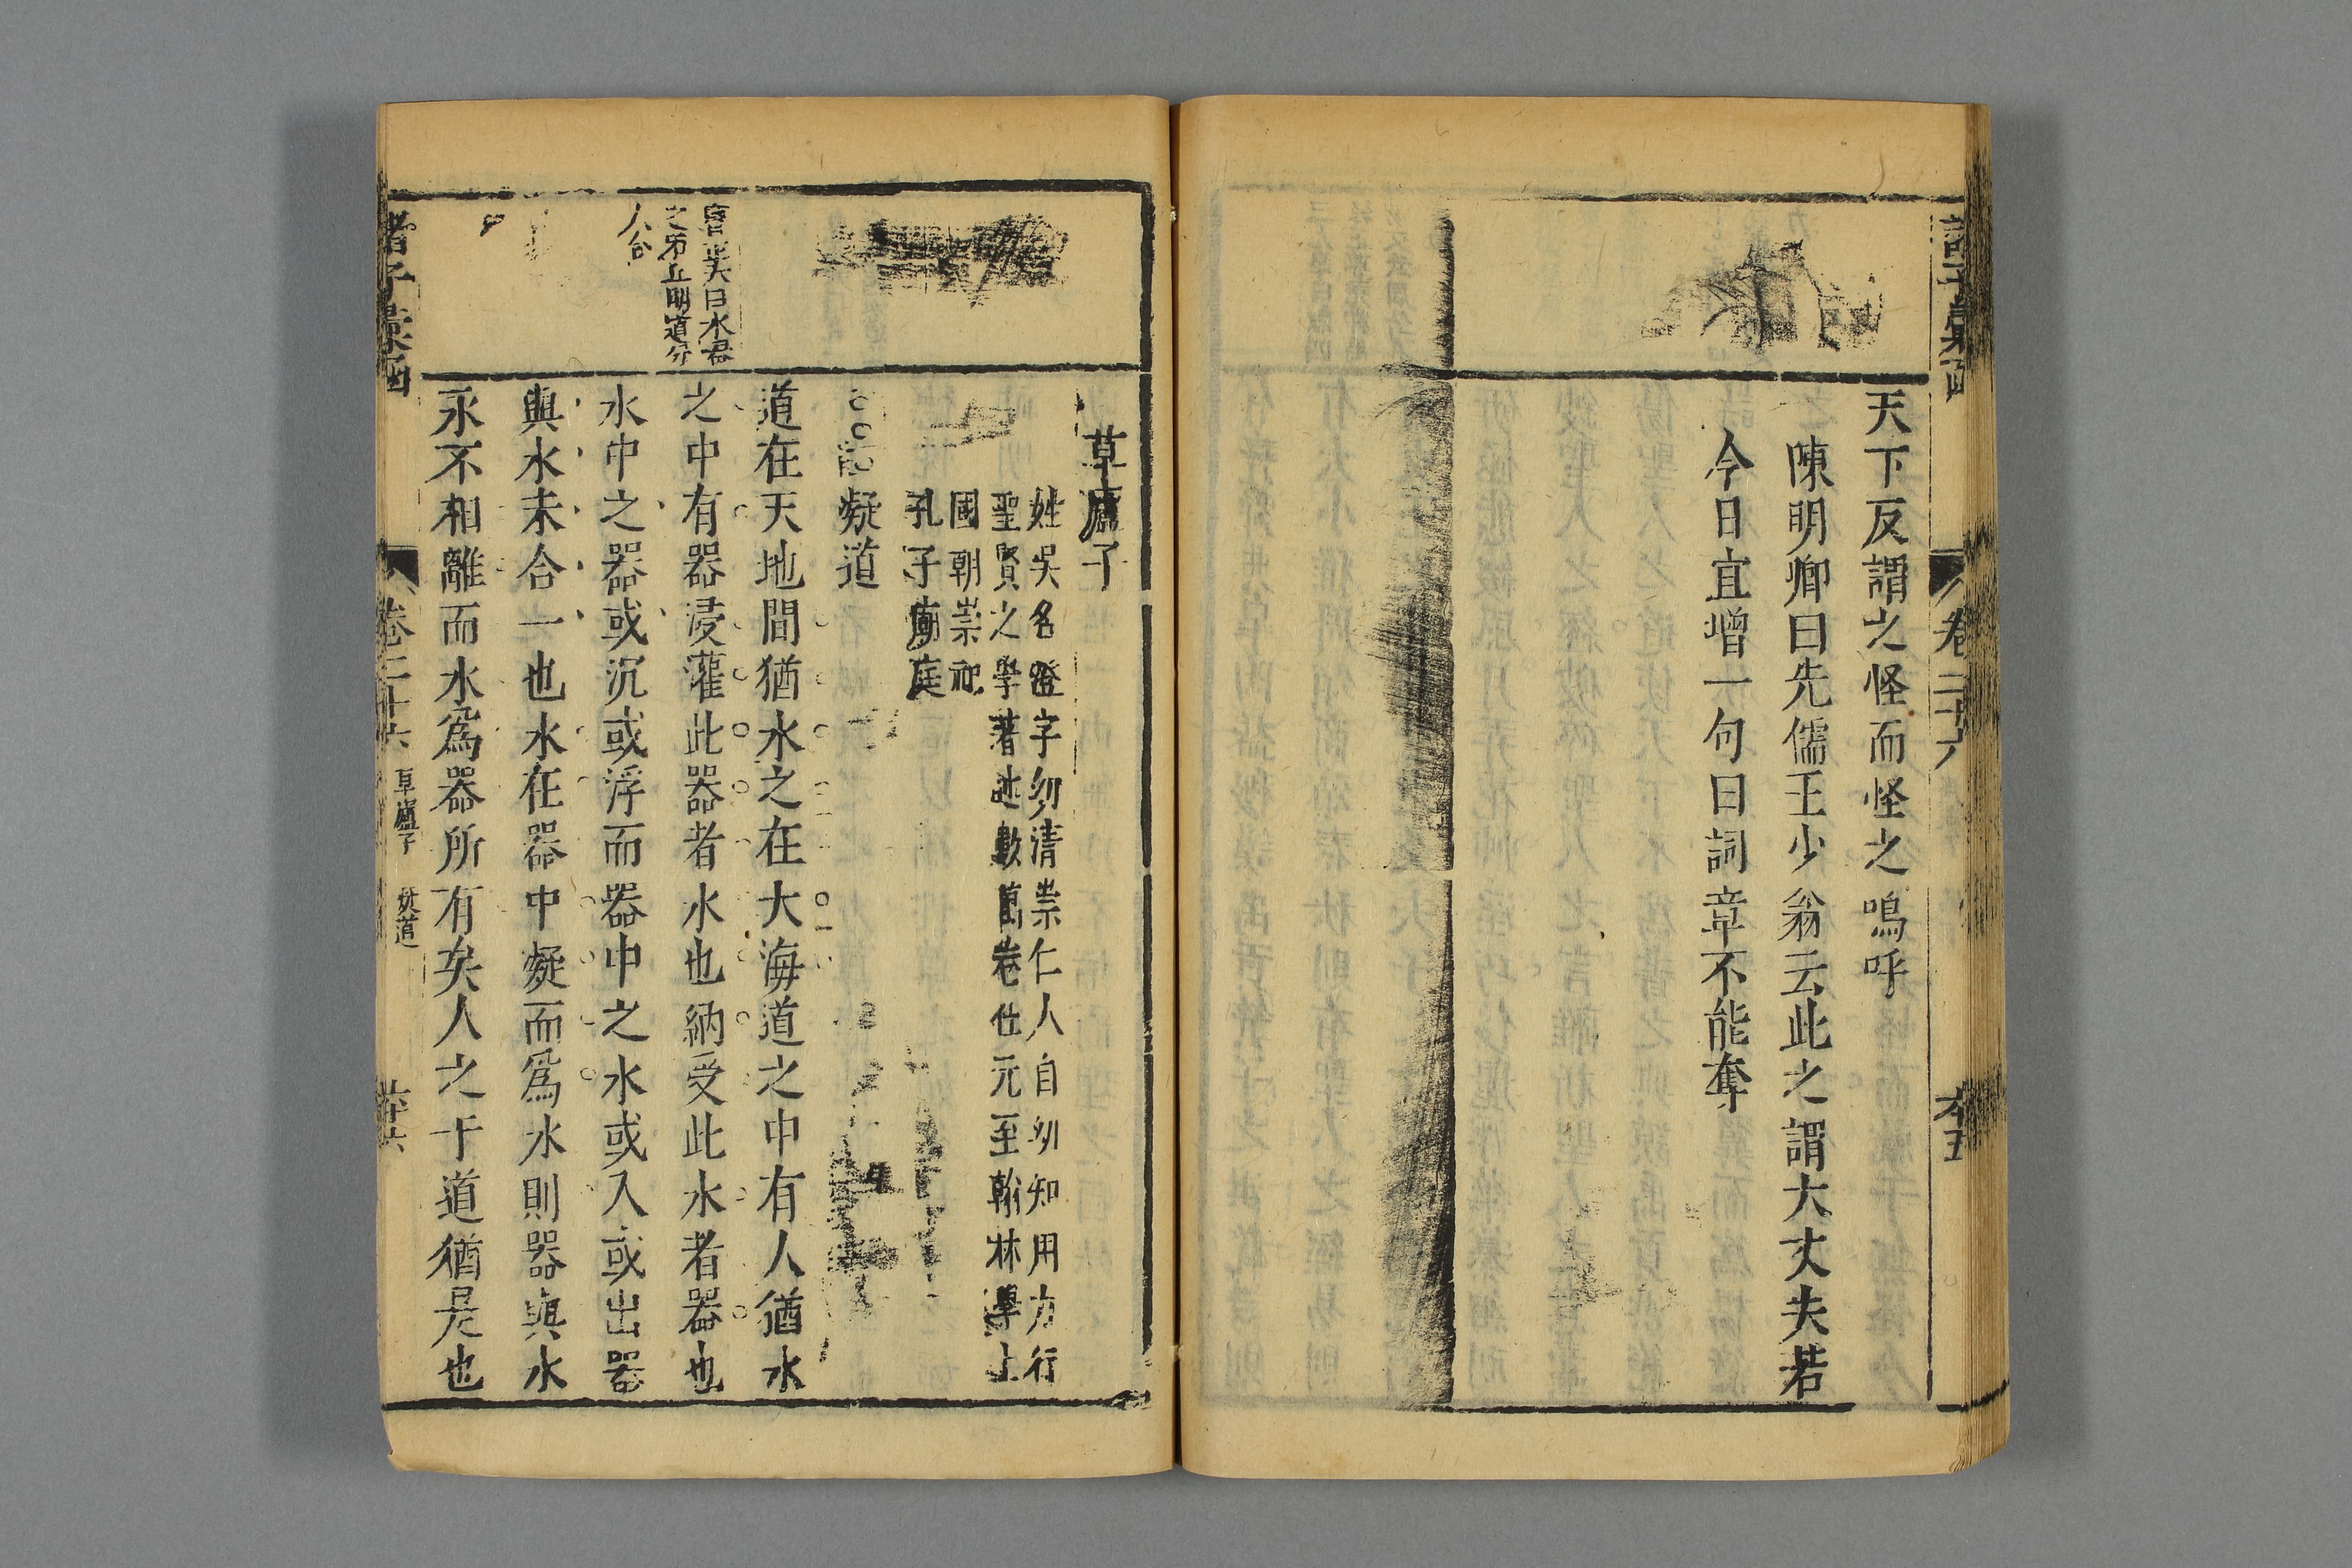 諸子彙函
卷二十六
六五
天下反謂之怪而怪之嗚呼
陳明卿曰先儒王少翁云此之謂大丈夫若
今日宜增一句曰詞章不能奪
草廬子
姓吳名澄字幼清崇仁人自幼知用力行
聖賢之學著述數萬卷仕元至翰林學士
國朝崇祀
孔子廟庭
凝道
道在天地間猶水之在大海道之中有人猶水
之中有器浸灌此器者水也納受此水者器也
水中之器或沉或浮而器中之水或入或出器
與水未合一也水在器中凝而為水則器與水
永不相離而水為器所有矣人之于道猶是也
曰水器
之席上明道分
人合
諸子彙函
卷二十六
草廬子
凝道
六十六